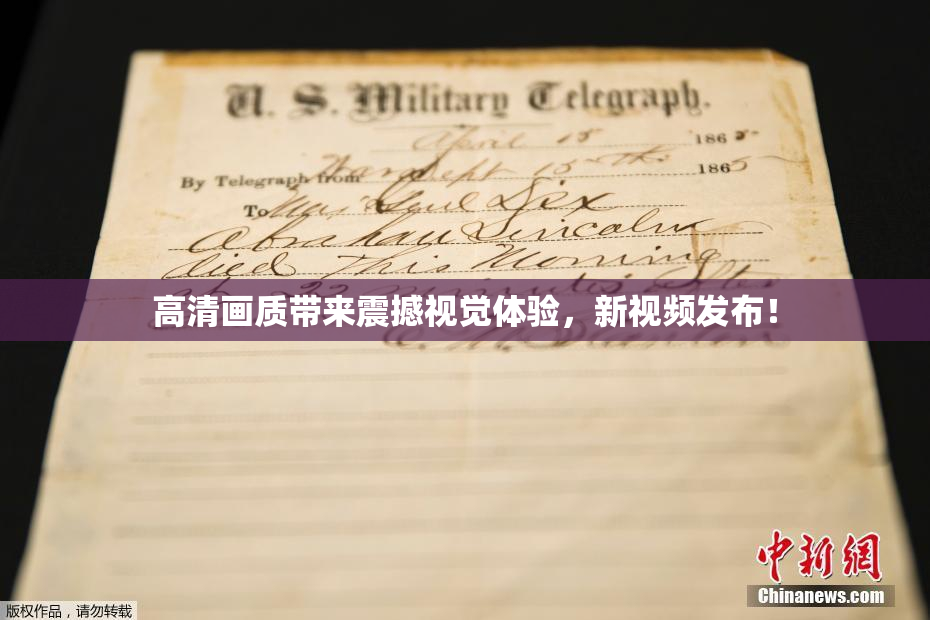 U. S. Military Telegraph.
April 15 1865
By Telegraph from War Dept 15th 1865
To Maj Genl Dix
Abraham Lincoln
died This Morning
at 22 minutes after
高清画质带来震撼视觉体验，新视频发布！
E. M. Stanton
中新网
Chinanews.com
版权作品，请勿转载